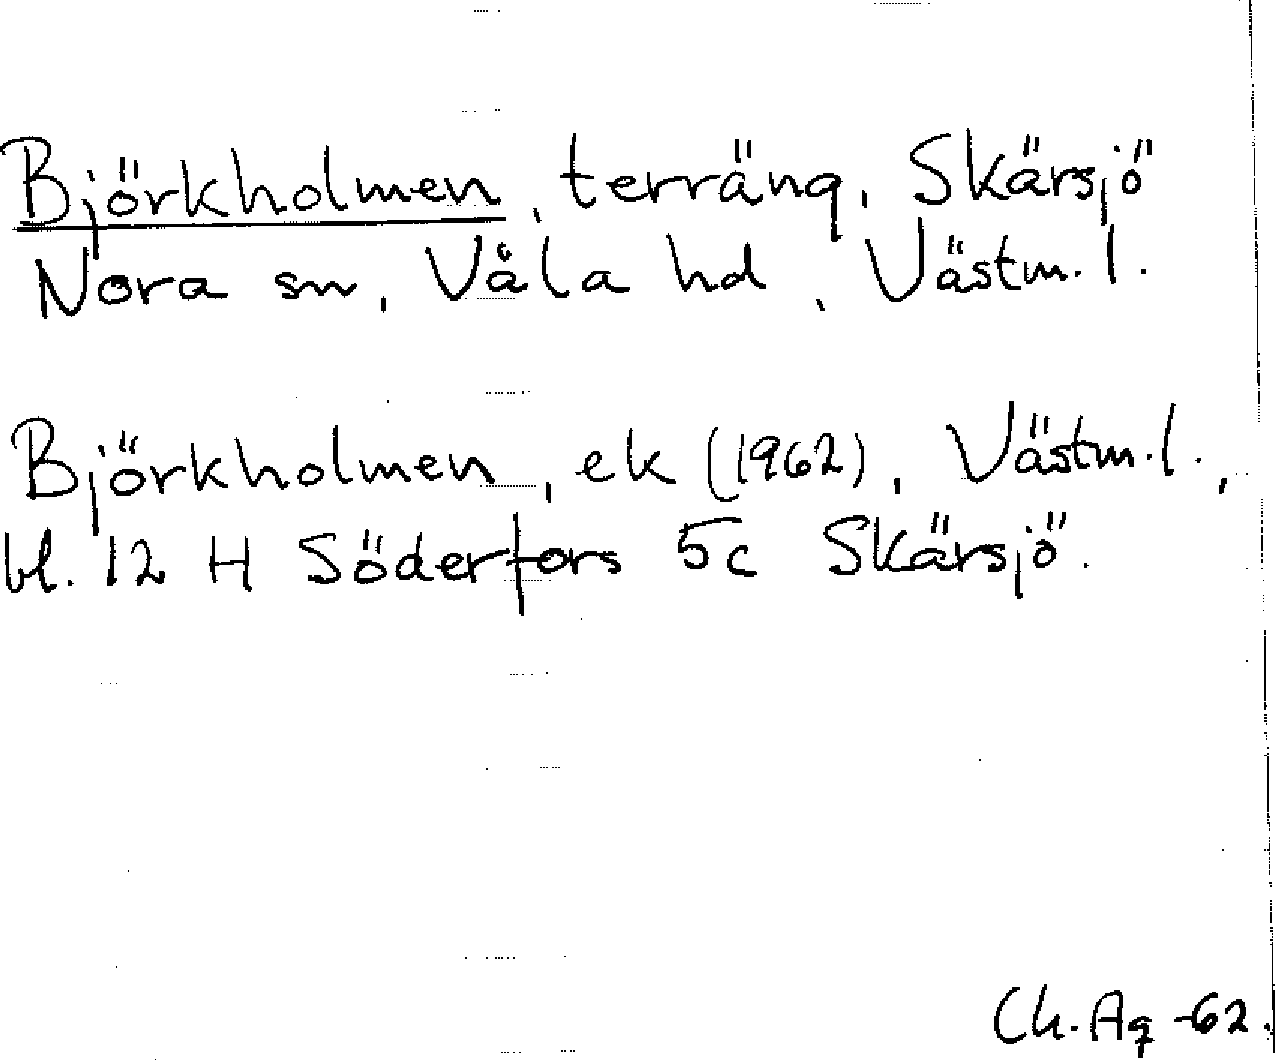 Björkholmen, terräng, Skärsjö
Nora sn, Våla hd, Västm.l.
Björkholmen, ek (1962), Västm.l.,
bl. 12 H Söderfors 5c Skärsjö.
Ch. Ag -62.